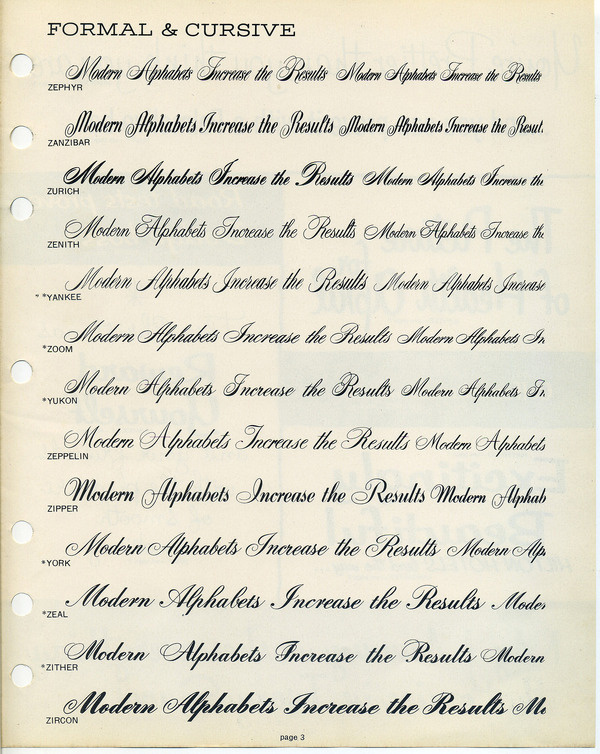 FORMAL & CURSIVE
Modern Alphabets Increase the Results Modern Alphabets Increase the Results
ZEPHYR
Modern Alphabets Increase the Results Modern Alphabets Increase the Resul
ZANZIBAR
Modern Alphabets Increase the Results Modern Alphabets Increase th
ZURICH
Modern Alphabets Increase the Results Modern Alphabets Increase th
ZENITH
Modern Alphabets Increase the Results Modern Alphabets Increase
*YANKEE
Modern Alphabets Increase the Results Modern Alphabets In
*ZOOM
Modern Alphabets Increase the Results Modern Alphabets In
*YUKON
Modern Alphabets Increase the Results Modern Alphabets
ZEPPELIN
Modern Alphabets Increase the Results Modern Alphab
ZIPPER
Modern Alphabets Increase the Results Modern Alp
*YORK
Modern Alphabets Increase the Results Moder
*ZEAL
Modern Alphabets Increase the Results Modern
*ZITHER
Modern Alphabets Increase the Results Mo
ZIRCON
page 3